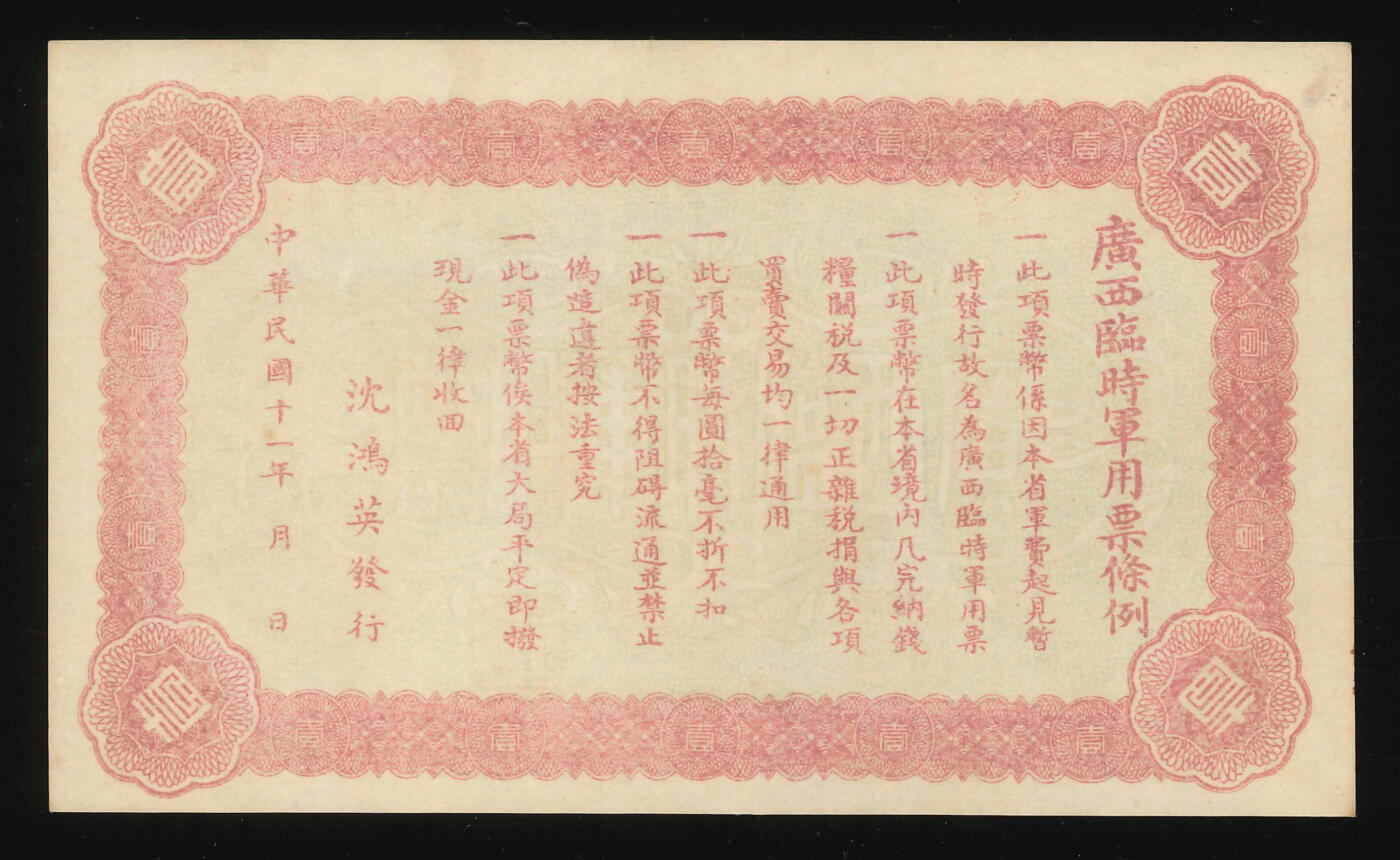 廣西臨時軍用票條例
一此項票幣係因本省軍費起見暫
時發行故名為廣西臨時軍用票
一此項票幣在本省境內凡完納錢
糧關税及一切正雜税捐與各項
買賣交易均一律通用
一此項票幣每圓拾毫不折不扣
一此項票幣不得阻碍流通並禁止
偽造違者按法重究
一此項票幣俟本省大局平定即撥
現金一律收回
沈鴻英發行
中華民國十一年 月 日
壹 壹 壹 壹 壹
壹 壹 壹 壹 壹
壹 壹
壹 壹
壹
壹
壹
壹